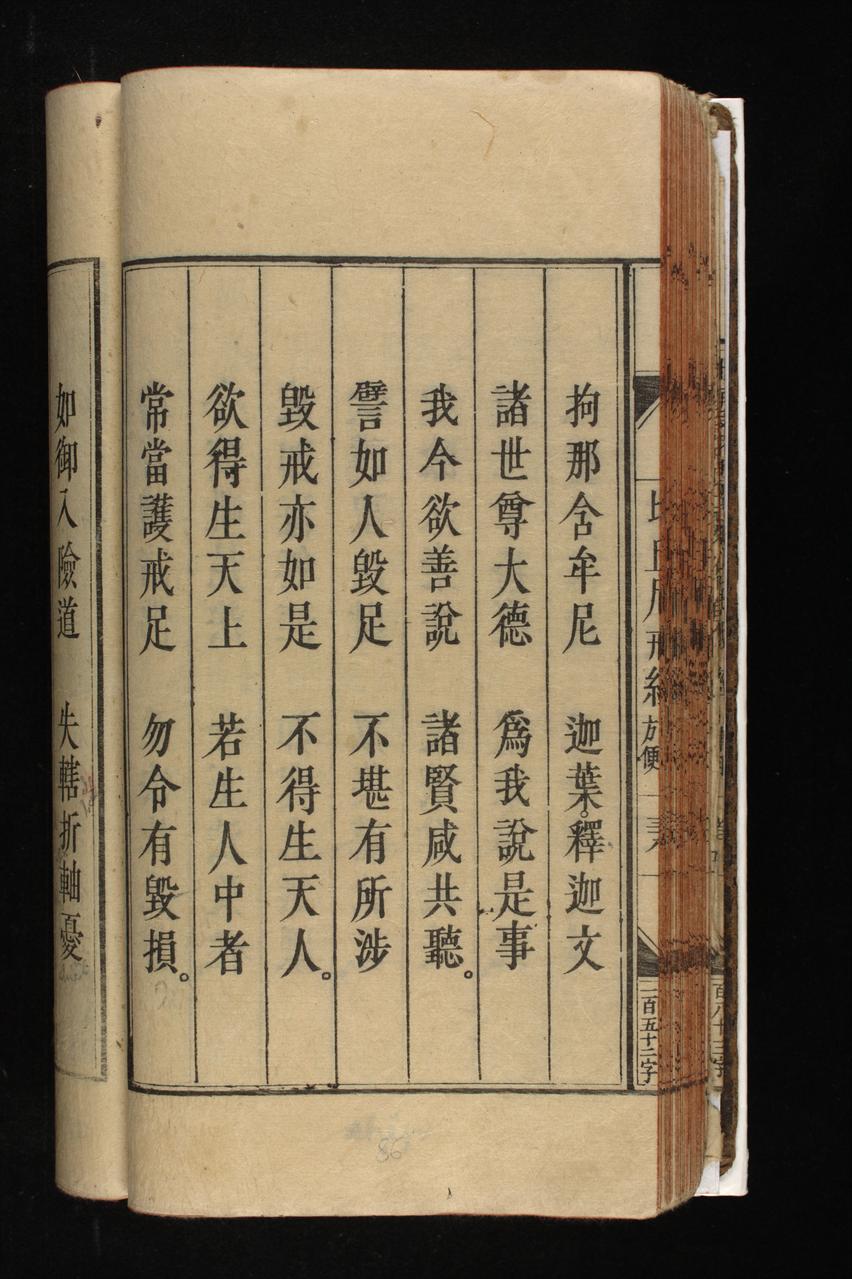 拘那含牟尼　迦葉。釋迦文
諸世尊大德　爲我說是事
我今欲善說　諸賢咸共聽。
譬如人毀足　不堪有所涉
毀戒亦如是　不得生天人。
欲得生天上　若生人中者
常當護戒足　勿令有毀損。
如御入險道　失轄折軸憂
方便
二百五十二字
86